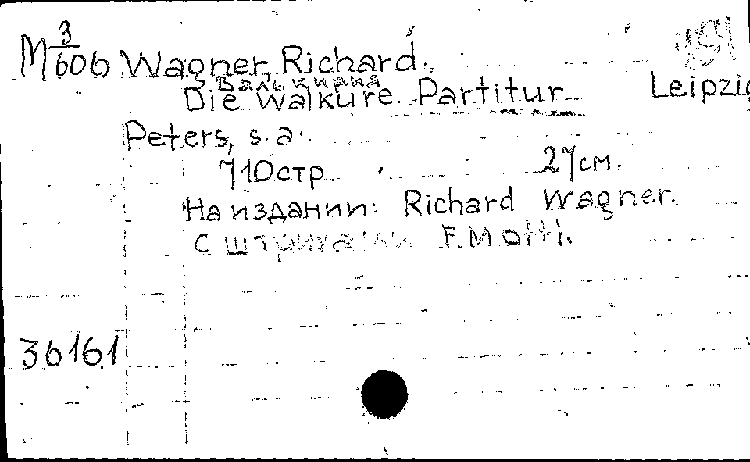 М 3/606 Wagner, Richard.
Валькирия
Die Walküre Partitur Leipzig
Peters, s.a.
710стр 27см.
На издании: Richard Wagner.
С штрихами F. Mottl.
36161